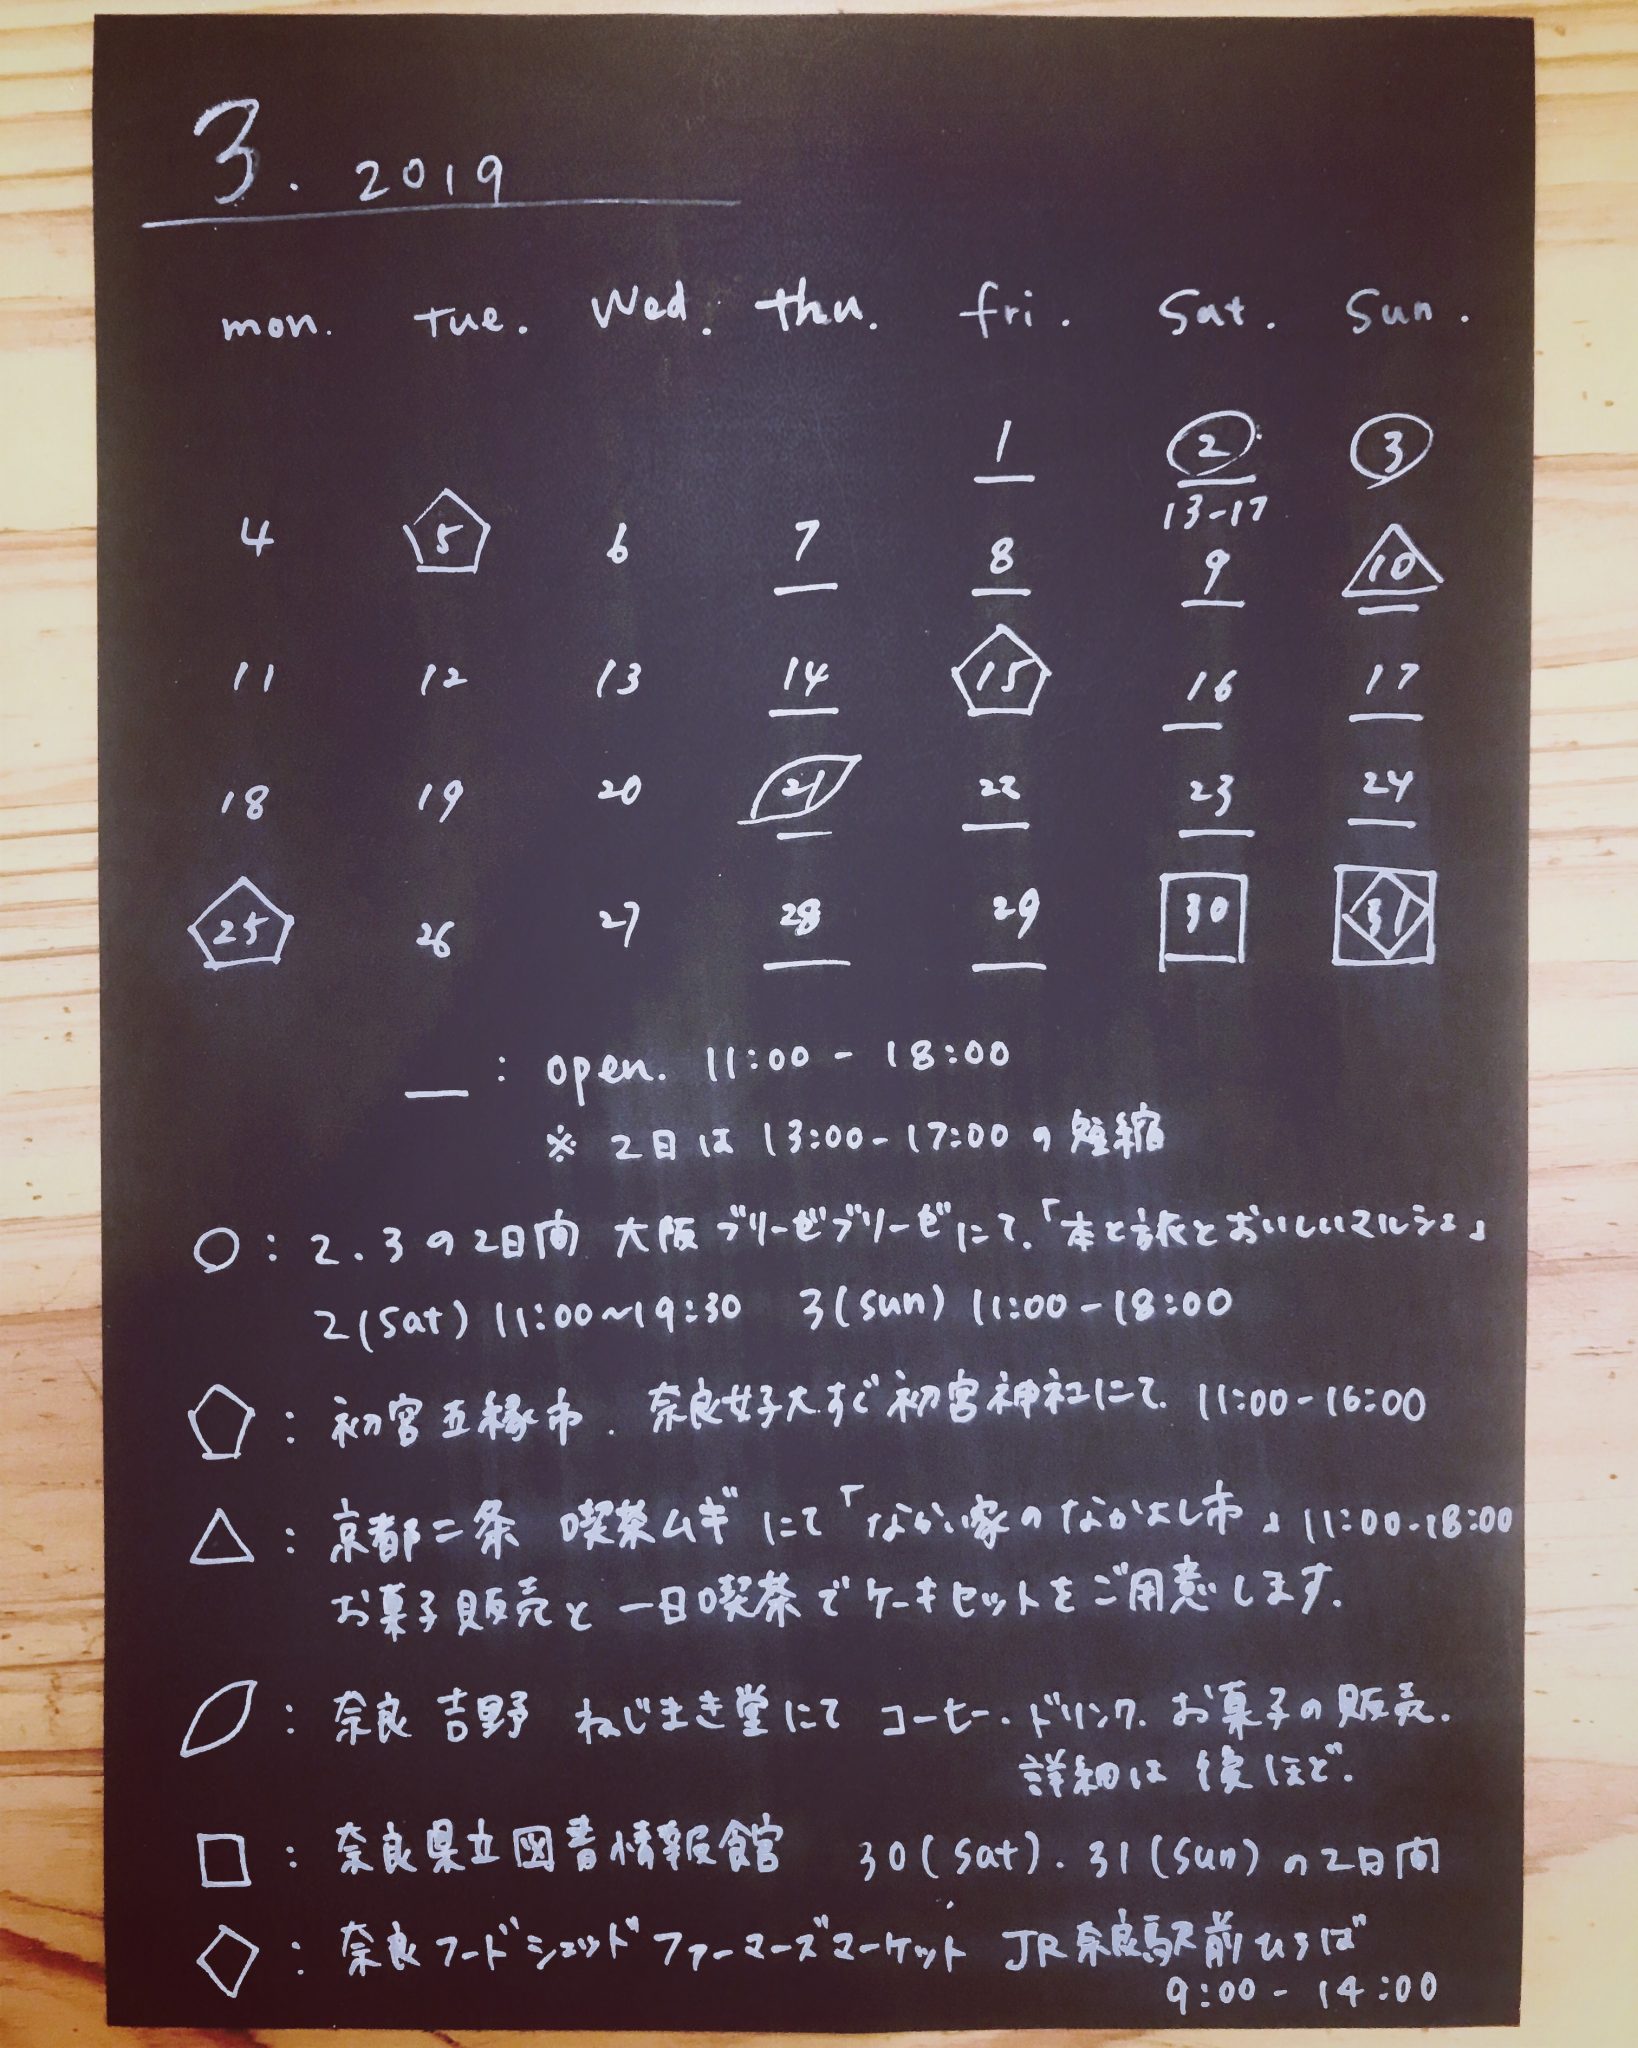 3. 2019
mon. Tue. Wed. thu. fri. Sat. Sun.
1 2 3
13-17
4 5 6 7 8 9 10
11 12 13 14 15 16 17
18 19 20 21 22 23 24
25 26 27 28 29 30 31
__ : open. 11:00 - 18:00
※ 2日は 13:00-17:00 の短縮
○: 2.3の2日間 大阪 ブリーゼブリーゼにて.「本と旅とおいしいマルシェ」
2(Sat) 11:00~19:30 3(Sun) 11:00-18:00
: 初宮五縁市. 奈良女子大すぐ初宮神社にて 11:00-16:00
△: 京都二条 喫茶ムギ にて「なかい家のなかよし市」11:00-18:00
お菓子販売と 一日喫茶でケーキセットをご用意します.
: 奈良 吉野 ねじまき堂にて コーヒー.ドリンク.お菓子の販売.
詳細は 後ほど.
□: 奈良県立図書情報館 30(Sat).31(Sun)の2日間
◇: 奈良フードシェッド ファーマーズマーケット JR奈良駅前ひろば
9:00 - 14:00